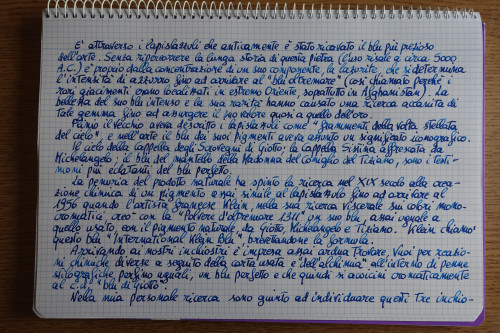 E' attraverso i lapislazzuli che anticamente è stato ricavato il blu più prezioso
dell'arte. Senza ripercorrere la lunga storia di questa pietra (l'uso risale a circa 5000
A.C.) è proprio dalla concentrazione di un suo componente, la lazurite, che si determina
l'intensità di azzurro fino ad arrivare al "blu oltremare" (così chiamato perché i
rari giacimenti erano localizzati in estremo Oriente, soprattutto in Afghanistan). La
bellezza del suo blu intenso e la sua rarità hanno causato una ricerca accanita di
tale gemma fino ad assurgere il suo valore quasi a quello dell'oro.
Plinio il vecchio aveva descritto i lapislazzuli come "frammenti della volta stellata
del cielo" e nell'arte il blu dai suoi pigmenti aveva assunto un significato iconografico.
Il cielo della Cappella degli Scrovegni di Giotto; la Cappella Sistina affrescata da
Michelangelo; il blu del mantello della Madonna del Coniglio del Tiziano, sono i testi-
moni più eclatanti del blu perfetto.
La penuria del prodotto naturale ha spinto la ricerca nel XIX secolo alla crea-
zione chimica di un pigmento assai simile al lapislazzulo fino ad arrivare al
1956 quando l'artista francese Klein, nella sua ricerca viscerale sui colori mono-
cromatici creò con la "Polvere d'oltremare 1311" un suo blu, assai uguale a
quello usato, con il pigmento naturale, da Giotto, Michelangelo e Tiziano. Klein chiamò
questo blu "International Klein Blu", brevettandone la formula.
Arrivando ai nostri inchiostri è impresa assai ardua trovare, vuoi per reazio-
ni chimiche diverse a seguito della carta usata e "dell'alchimia" all'interno di penne
stilografiche perfino uguali, un blu perfetto e che quindi si avvicini cromaticamente
al c.d. "blu di Giotto".
Nella mia personale ricerca sono giunto ad individuare questi tre inchio-